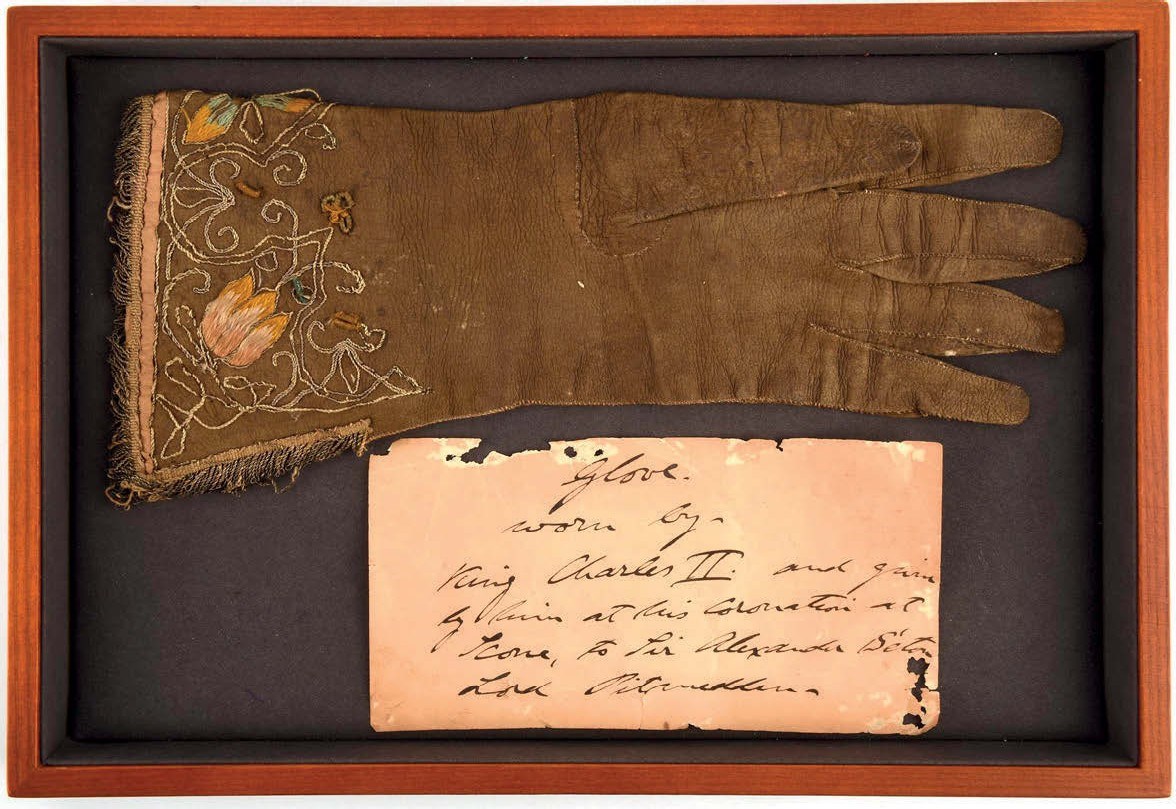 Glove.
worn by-
King Charles II. and given
by him at his Coronation at
Scone, to Sir Alexander Seton
Lord Pitmedden-